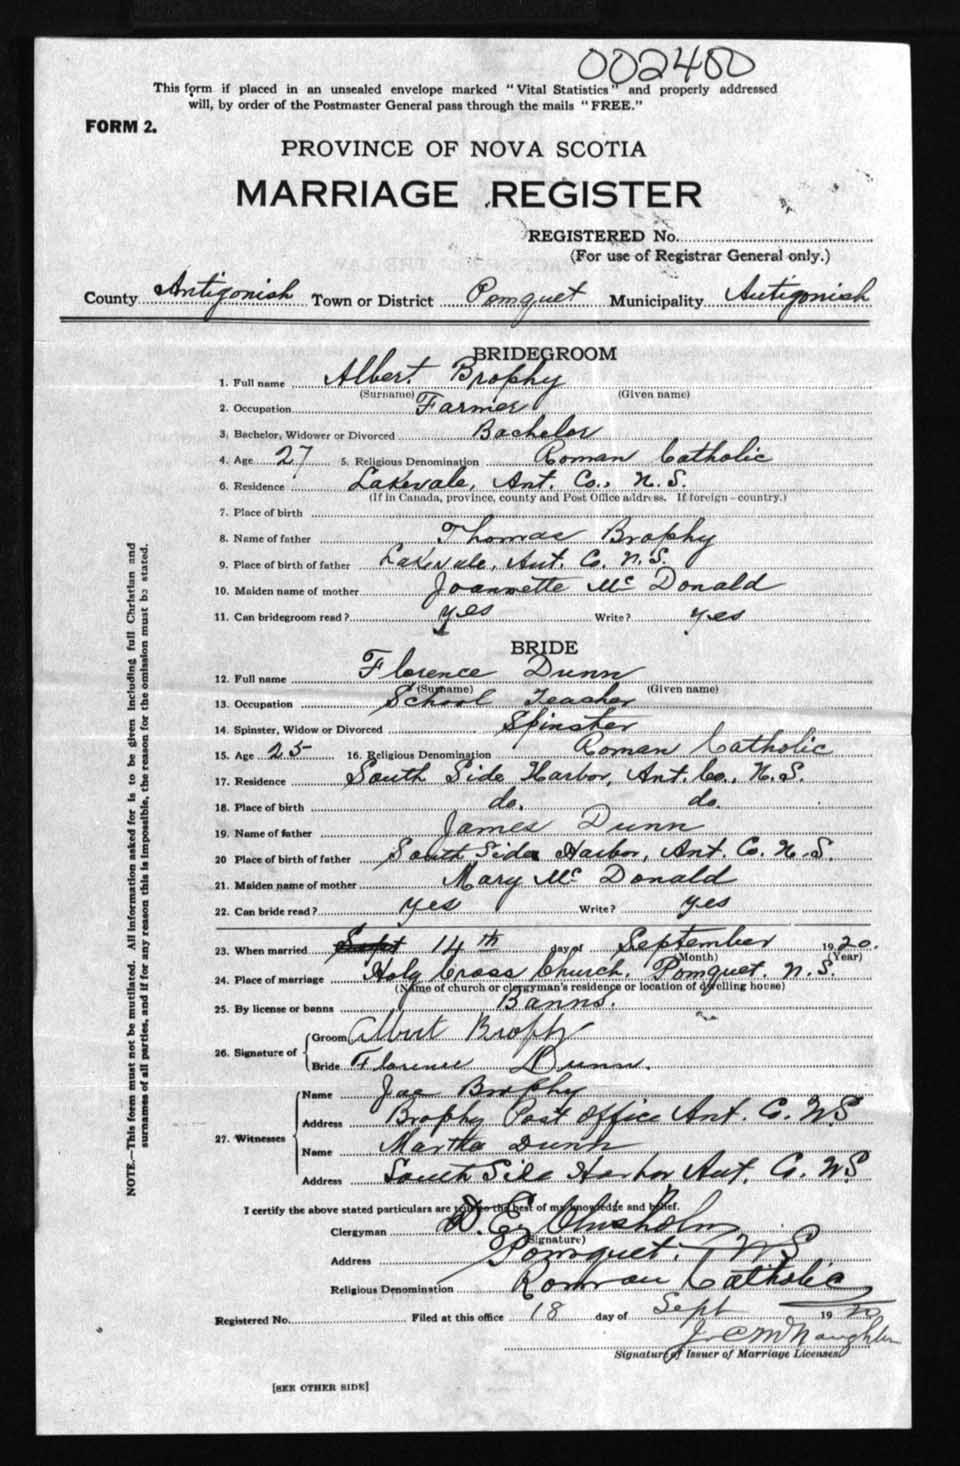 002480
This form if placed in an unsealed envelope marked "Vital Statistics" and properly addressed
will, by order of the Postmaster General pass through the mails "FREE."
FORM 2.
PROVINCE OF NOVA SCOTIA
MARRIAGE REGISTER
REGISTERED No.
(For use of Registrar General only.)
County Antigonish Town or District Pomquet Municipality Antigonish
BRIDEGROOM
1. Full name Albert Brophy
(Surname) (Given name)
2. Occupation Farmer
3. Bachelor, Widower or Divorced Bachelor
4. Age 27 5. Religious Denomination Roman Catholic
6. Residence Lakevale, Ant. Co., N.S.
(If in Canada, province, county and Post Office address. If foreign—country.)
7. Place of birth
8. Name of father Thomas Brophy
9. Place of birth of father Lakevale, Ant. Co. N.S.
10. Maiden name of mother Joannette McDonald
11. Can bridegroom read? yes Write? yes
BRIDE
12. Full name Florence Dunn
(Surname) (Given name)
13. Occupation School Teacher
14. Spinster, Widow or Divorced Spinster
15. Age 25 16. Religious Denomination Roman Catholic
17. Residence South Side Harbor, Ant. Co., N.S.
18. Place of birth do. do.
19. Name of father James Dunn
20 Place of birth of father South Side Harbor, Ant. Co. N.S.
21. Maiden name of mother Mary McDonald
22. Can bride read? yes Write? yes
23. When married Sept 14th day of September 1920.
(Month) (Year)
24. Place of marriage Holy Cross Church, Pomquet. N.S.
(Name of church or clergyman's residence or location of dwelling house)
25. By license or banns Banns.
26. Signature of Groom Albert Brophy
Bride Florence Dunn.
27. Witnesses Name Jas Brophy
Address Brophy Post Office Ant. Co. N.S
Name Martha Dunn
Address South Side Harbor Ant. Co. N.S
I certify the above stated particulars are true to the best of my knowledge and belief.
Clergyman D. E. Chisholm
(Signature)
Address Pomquet, N.S
Religious Denomination Roman Catholic
Registered No. Filed at this office 18 day of Sept 1920
J. C. McNaughton
Signature of Issuer of Marriage Licenses.
[SEE OTHER SIDE]
NOTE.—This form must not be mutilated. All information asked for is to be given including full Christian and
surnames of all parties, and if for any reason this is impossible, the reason for the omission must be stated.